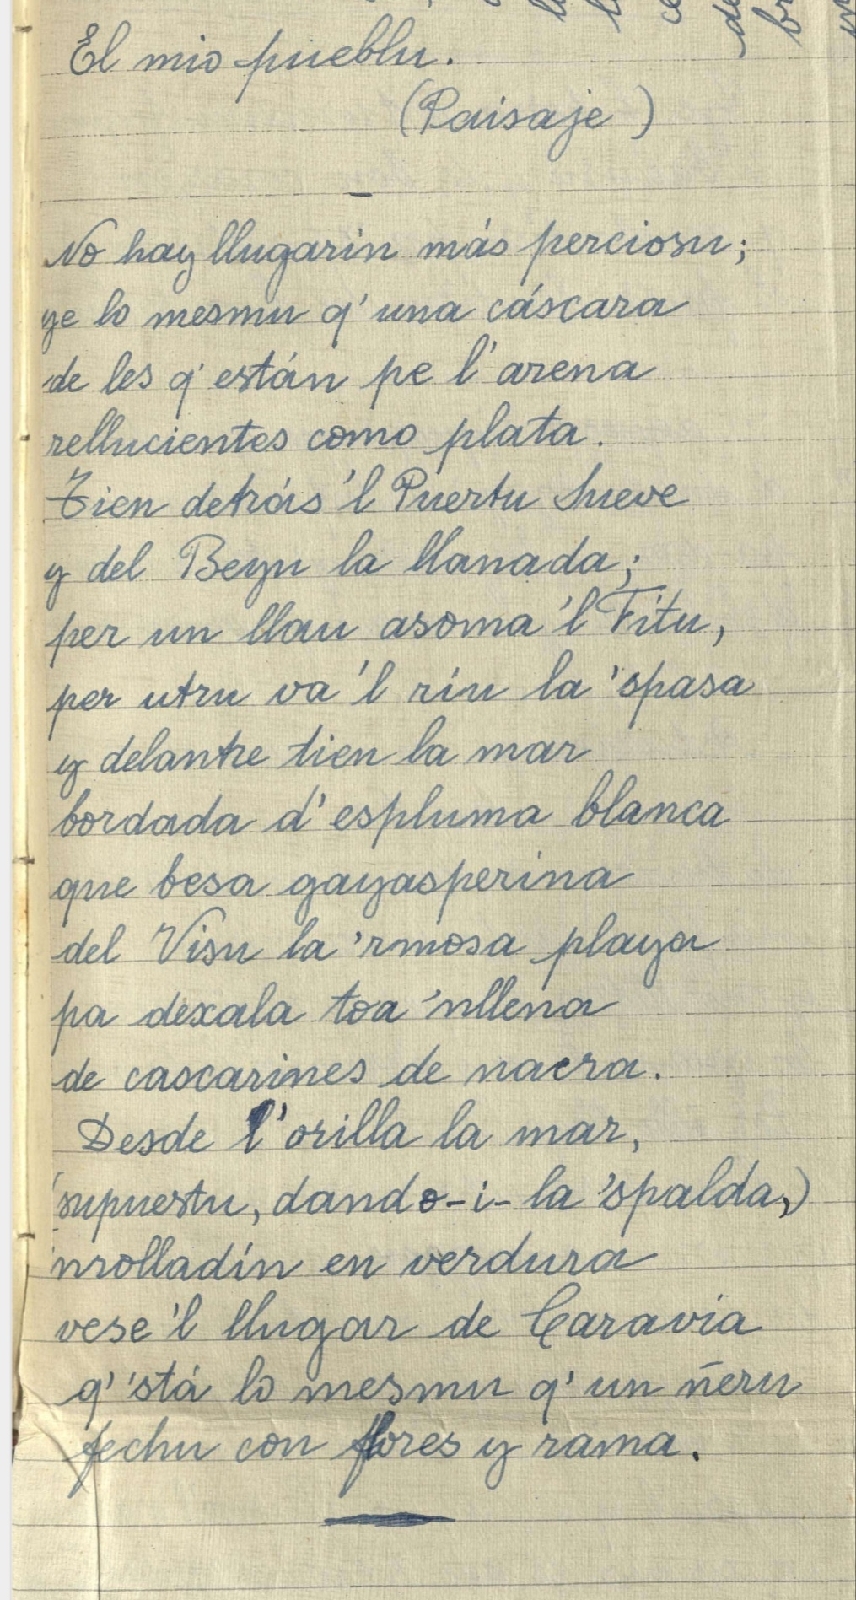 El mio pueblu.
(Paisaje)
No hay llugarin más perciosu;
ye lo mesmu q'una cáscara
de les q'están pe l'arena
rellucientes como plata.
Tien detrás 'l Puertu Sueve
y del Beyu la llanada;
per un llau asoma 'l Fitu,
per utru va 'l ríu la 'spasa
y delantre tien la mar
bordada d'espluma blanca
que besa gayasperina
del Visu la 'rmosa playa
pa dexala toa 'nllena
de cascarines de nacra.
Desde l'orilla la mar,
(supuestu, dando-i- la 'spalda,)
'nrolladín en verdura
vese 'l llugar de Caravia
q' 'stá lo mesmu q'un ñeru
fechu con flores y rama.